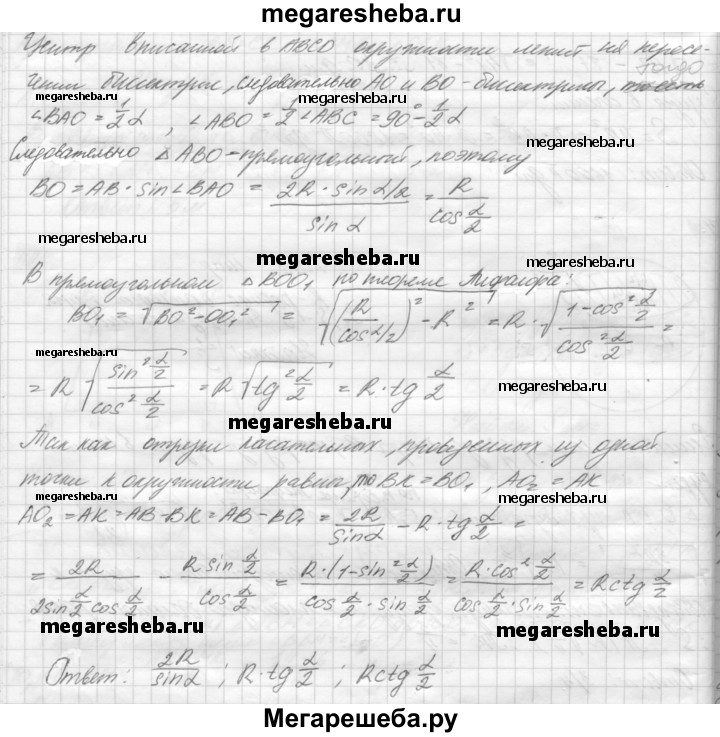 megaresheba.ru
Центр вписанной в ABCD окружности лежит на пересе-
чении биссектрис, следовательно AO и BO - биссектрисы, то есть
megaresheba.ru megaresheba.ru
∠BAO = 1/2 α, ∠ABO = 1/2 ∠ABC = 90° - 1/2 α
Следовательно △ABO - прямоугольный, поэтому
BO = AB · sin∠BAO = 2R · sin α/2 / sin α = R / cos α/2
megaresheba.ru megaresheba.ru
В прямоугольном △BOO₁ по теореме Пифагора:
BO₁ = √(BO² - OO₁²) = √((R / cos α/2)² - R²) = R · √((1 - cos² α/2) / cos² α/2) =
megaresheba.ru
= R √(sin² α/2 / cos² α/2) = R √(tg² α/2) = R · tg α/2
megaresheba.ru
megaresheba.ru
Так как отрезки касательных, проведенных из одной
точки к окружности равны, то BK = BO₁, AO₂ = AK
megaresheba.ru megaresheba.ru
AO₂ = AK = AB - BK = AB - BO₁ = 2R / sin α - R · tg α/2 =
= 2R / 2 sin α/2 cos α/2 - R sin α/2 / cos α/2 = R · (1 - sin² α/2) / cos α/2 · sin α/2 = R · cos² α/2 / cos α/2 · sin α/2 = R ctg α/2
megaresheba.ru megaresheba.ru
Ответ: 2R / sin α ; R · tg α/2 ; R ctg α/2
Мегарешеба.ру